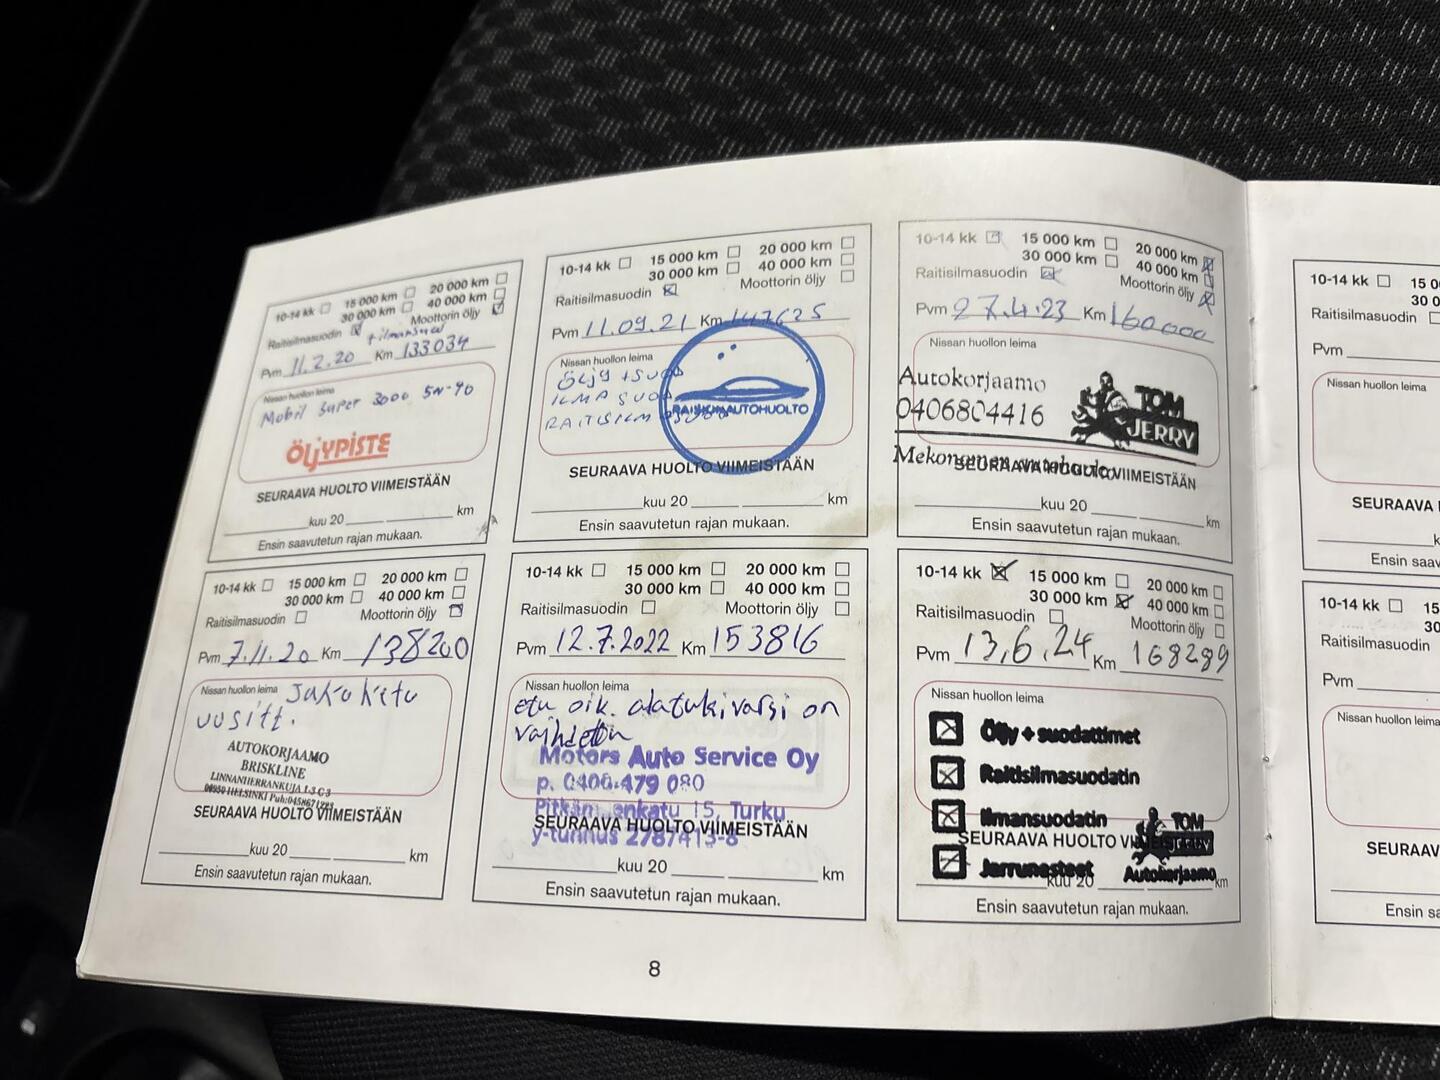 10-14 kk 15 000 km 20 000 km
30 000 km 40 000 km
Raitisilmasuodin Moottorin öljy
Pvm 11.2.20 Km 133034
Nissan huollon leima
Mobil super 3000 5W-40
ÖLJYPISTE
SEURAAVA HUOLTO VIIMEISTÄÄN
kuu 20 km
Ensin saavutetun rajan mukaan.
10-14 kk 15 000 km 20 000 km
30 000 km 40 000 km
Raitisilmasuodin Moottorin öljy
Pvm 11.09.21 Km 147625
Nissan huollon leima
ÖLJY + SUOD
ILMA SUOD
RAITISILMASUOD
AUTOHUOLTO
SEURAAVA HUOLTO VIIMEISTÄÄN
kuu 20 km
Ensin saavutetun rajan mukaan.
10-14 kk 15 000 km 20 000 km
30 000 km 40 000 km
Raitisilmasuodin Moottorin öljy
Pvm 27.4.23 Km 160000
Nissan huollon leima
Autokorjaamo
0406804416
TOM
JERRY
Mekonomen
SEURAAVA HUOLTO VIIMEISTÄÄN
kuu 20 km
Ensin saavutetun rajan mukaan.
10-14 kk 15 000 km 20 000 km
30 000 km 40 000 km
Raitisilmasuodin Moottorin öljy
Pvm 7.11.20 Km 138200
Nissan huollon leima
jakoketju
uusitt.
AUTOKORJAAMO
BRISKLINE
LINNANHERRANKUJA 1-3 C 3
00950 HELSINKI
SEURAAVA HUOLTO VIIMEISTÄÄN
kuu 20 km
Ensin saavutetun rajan mukaan.
10-14 kk 15 000 km 20 000 km
30 000 km 40 000 km
Raitisilmasuodin Moottorin öljy
Pvm 12.7.2022 Km 153816
Nissan huollon leima
etu oik. alatukivarsi on
vaihdettu
Motors Auto Service Oy
p. 0400 479 080
Pitkämäenkatu 15, Turku
y-tunnus 2787413-8
SEURAAVA HUOLTO VIIMEISTÄÄN
kuu 20 km
Ensin saavutetun rajan mukaan.
10-14 kk 15 000 km 20 000 km
30 000 km 40 000 km
Raitisilmasuodin Moottorin öljy
Pvm 13.6.24 Km 168289
Nissan huollon leima
Öljy + suodattimet
Raitisilmasuodatin
Ilmansuodatin
Jarrunesteet
TOM
JERRY
Autokorjaamo
SEURAAVA HUOLTO VIIMEISTÄÄN
kuu 20 km
Ensin saavutetun rajan mukaan.
8
10-14 kk 15 0
30 0
Raitisilmasuodin
Pvm
Nissan huollon leima
SEURAAVA
Ensin s
10-14 kk 15
30
Raitisilmasuodin
Pvm
Nissan huollon leima
SEURAAV
Ensin s